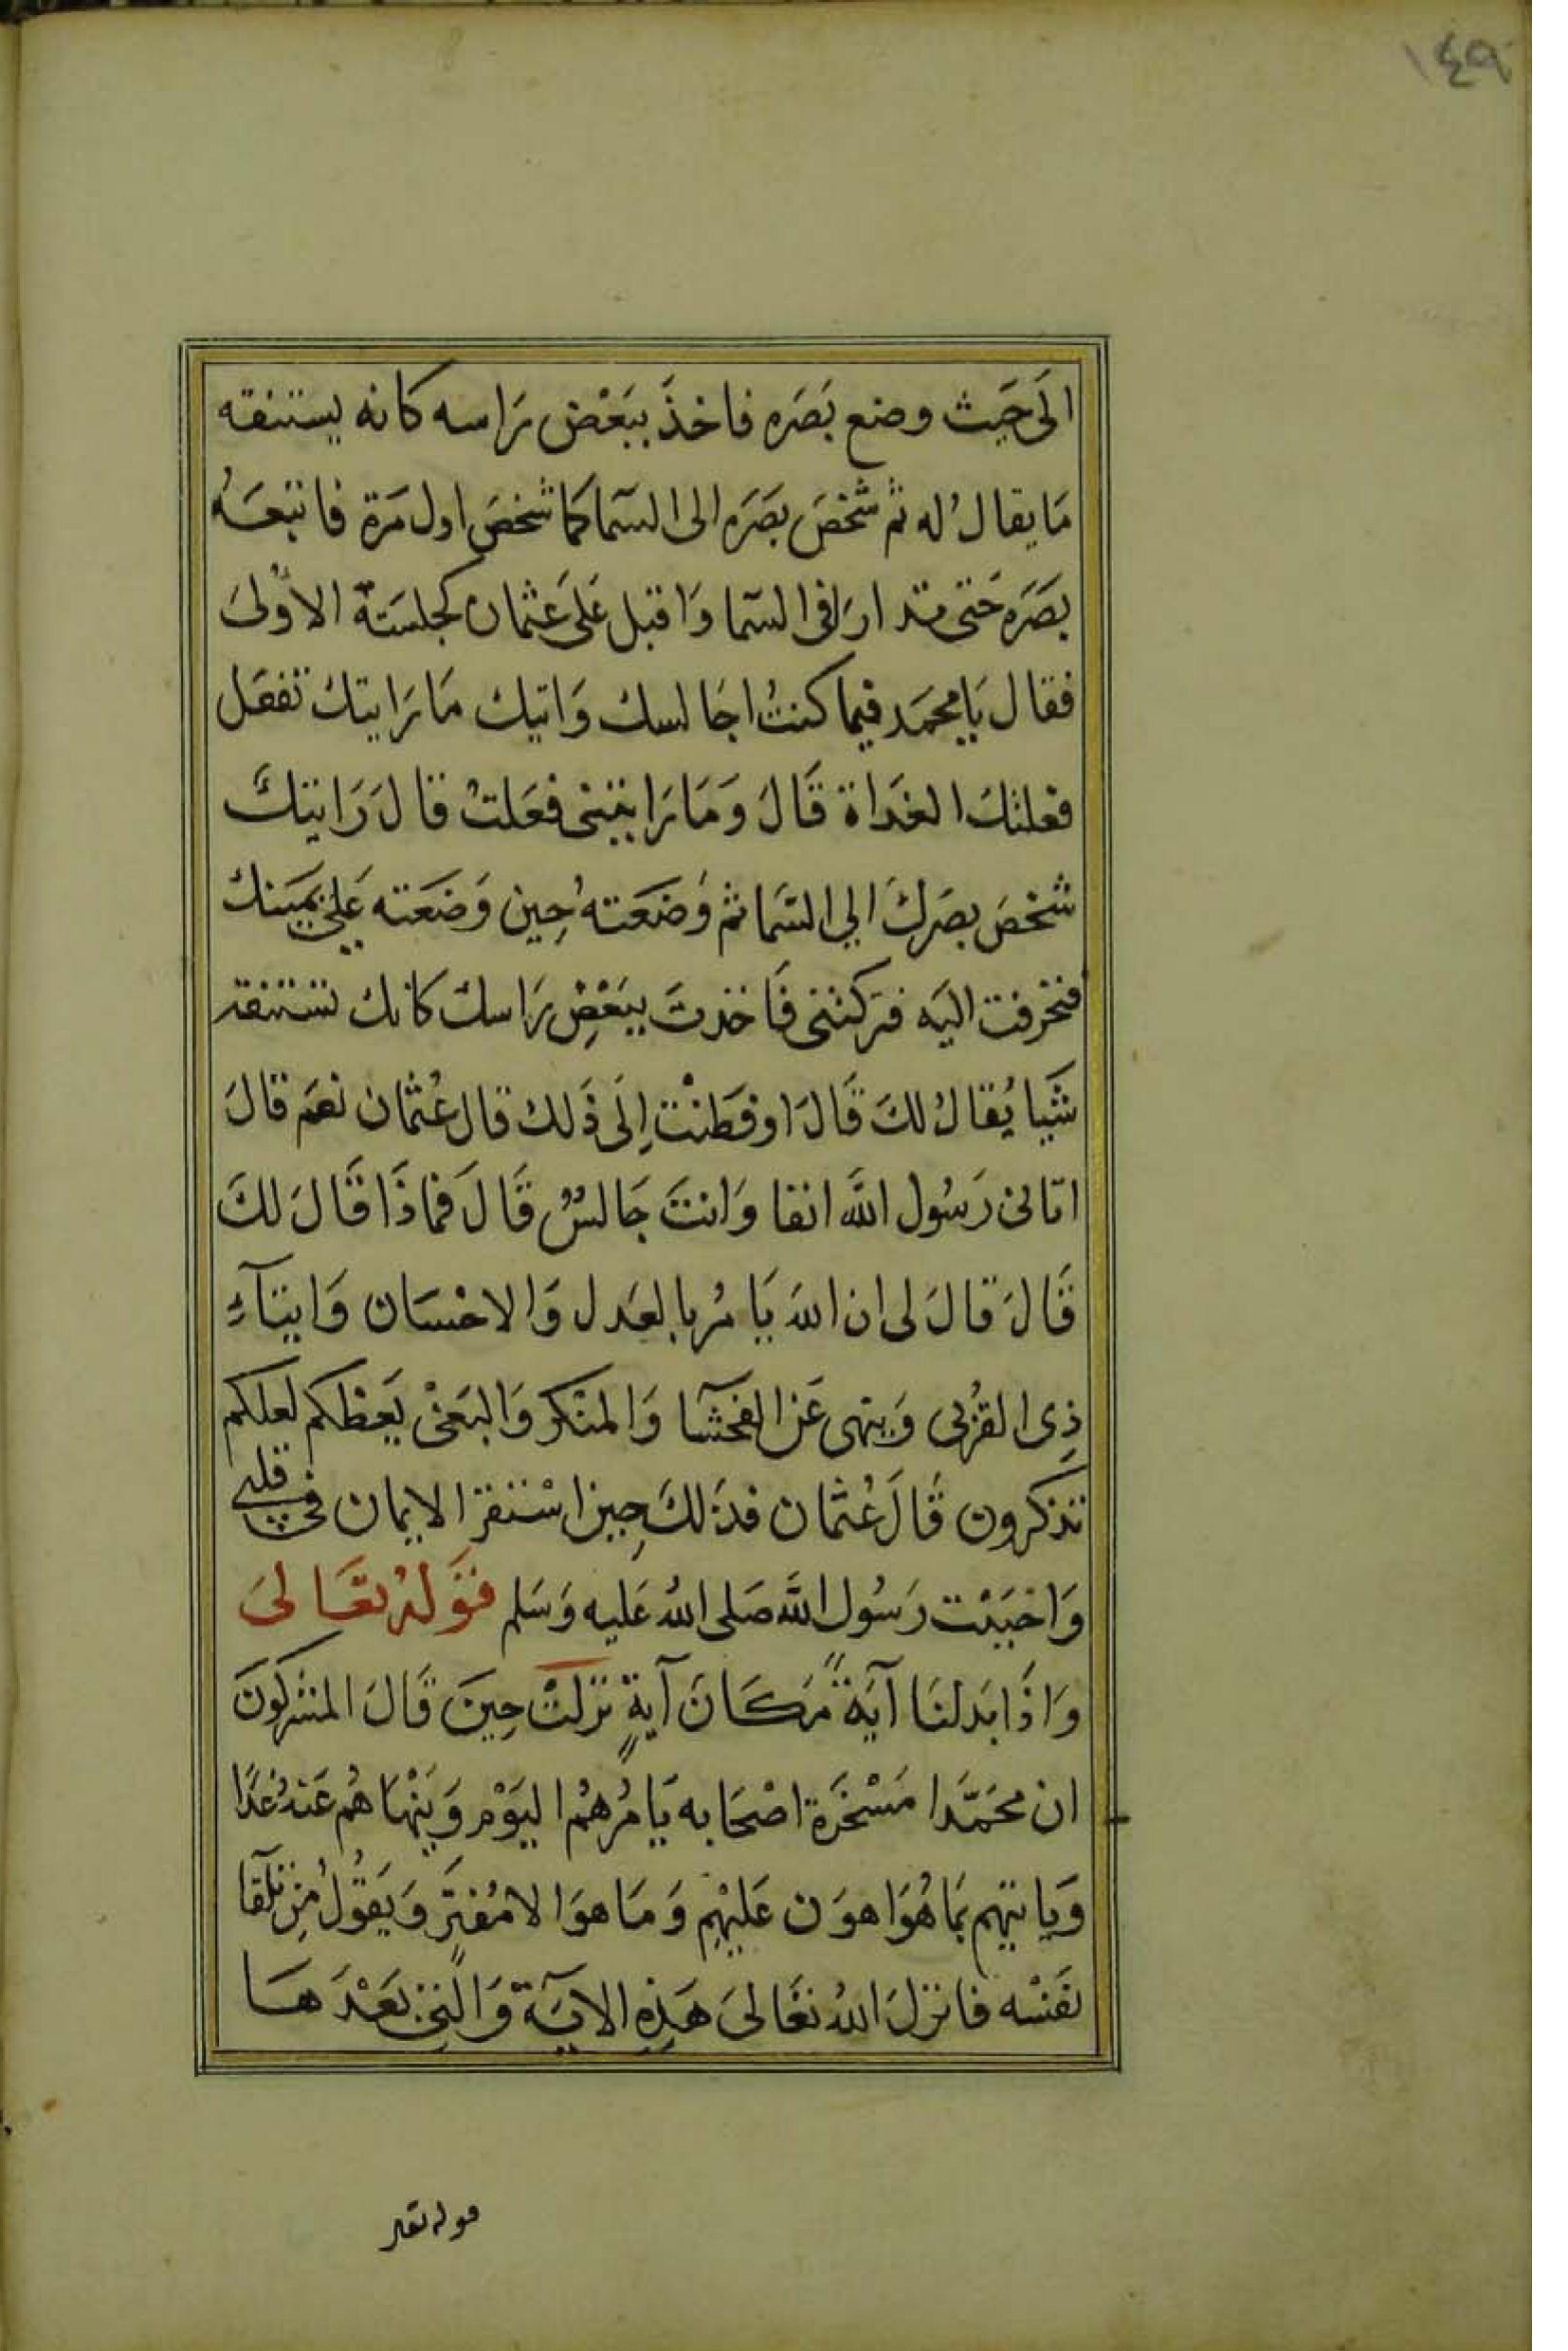 ١٤٩
الَى حَيث وضع بَصَره فاخذَ ببَغْض رَاسه كانه يستنفقه
مَا يقال له ثم شخصَ بصَرَه الى السمآ كما شخصَ اول مَرة فاتبعَهُ
بصَرَه حَتى تدارا فى السمآ وَاقبل عَلى عَثمان كجلسَتة الاوْلىَ
فقال يَا محمَد فيما كنتُ اجَالسك وَاتيك مَا رَايتك تفعَل
فعلتكَ الغدَاة قَالَ وَمَا رَايتنى فعَلتُ قالَ رَايتكَ
شخصَ بصَركَ الي السّما ثم وَضعَتهُ حِين وَضعَته عَلي يمينك
فتحرفت اليَه فتركتنى فَاخذتَ ببَغْضِ رَاسك كانك تستنفقه
شَيا يُقالُ لكَ قَالَ اوفطَنْت اِلَى ذَلك قال عُثمان نعَم قالَ
اتانى رَسُول اللَّه انفا وَانتَ جَالسٌ قَالَ فماذَا قَالَ لكَ
قَالَ قالَ لى ان اللهَ يَامُر بالعَدل وَالاحْسَان وَايتآء
ذِى القُربى وَينهى عَن الفحشآ وَالمنْكر وَالبَغْى يَعظكم لعلكم
تذكرون قَالَ عُثمان فذلكَ حِين اسْتقر الايمان فى قلبى
وَاحببْت رَسُول اللَّه صَلى اللهُ عَليه وَسَلم قَوَلهُ تعَالىَ
وَاذَا بَدلنَا آيَةً مَكَانَ آيةٍ نزلتْ حِينَ قَالَ المشركونَ
ان محَمَّدا مَسْخَرَة اصْحَابه يَامُرهُم اليَوْم وَيَنْهَاهُم عَنهُ غَدًا
وَياتيهم بمَا هُوَ اهوَن عَليْهِم وَمَا هوَ الا مُفترٍ وَيَقُولُ مِن تلقآ
نفَسْه فانزلَ اللهُ تعَالىَ هَذِه الاَيَةْ وَالتِى بَعْدَهَا
قوله تعا